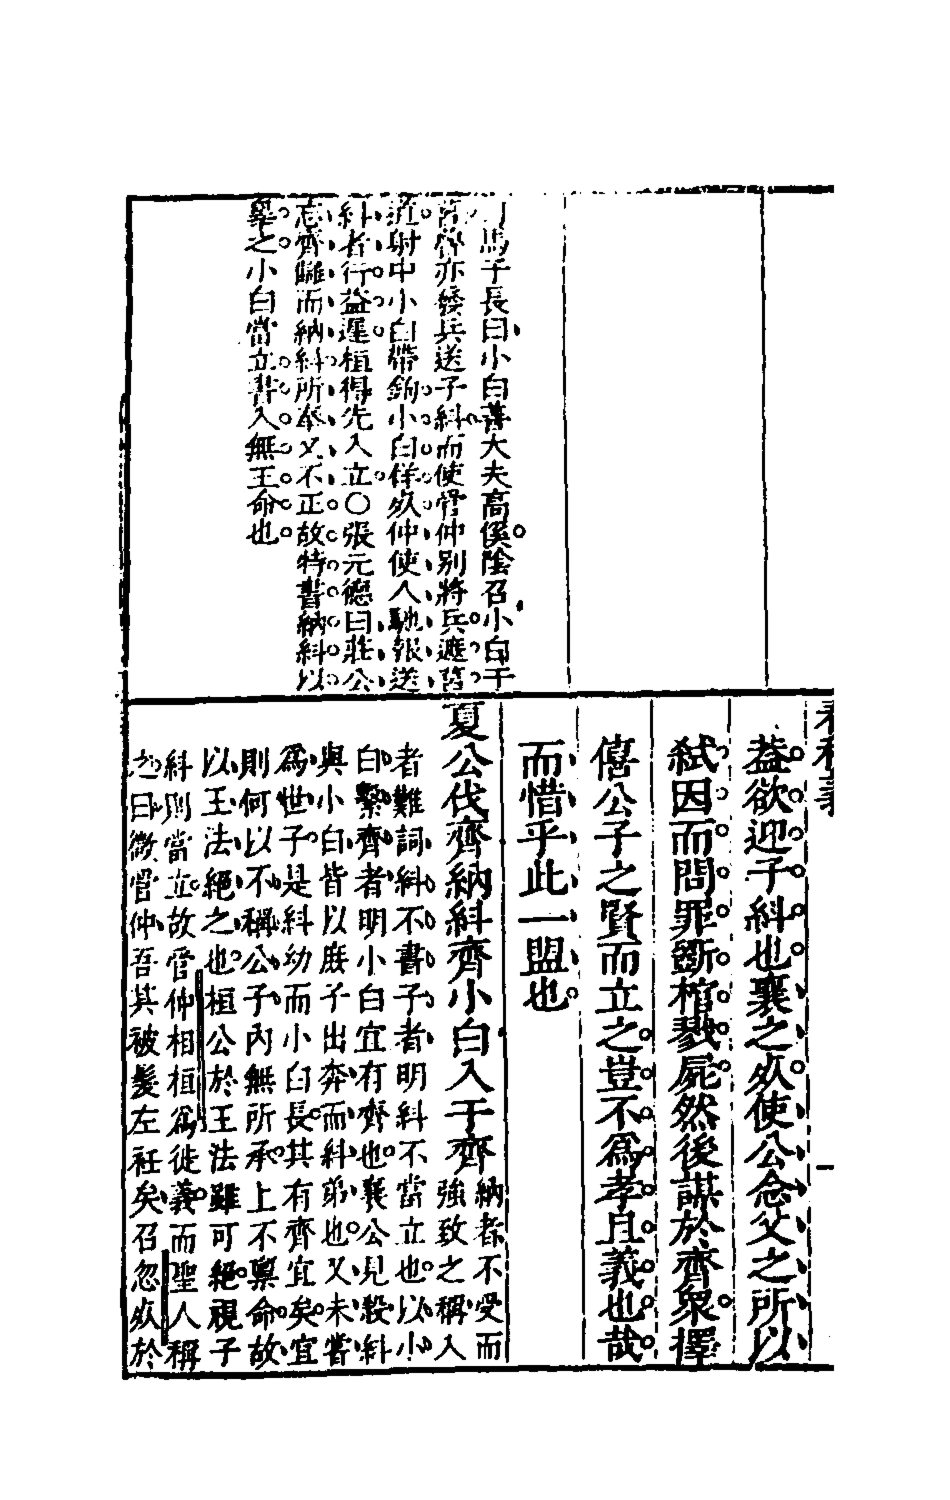 司馬子長曰小白善大夫高傒陰召小白于
莒魯亦發兵送子糾而使管仲別將兵遮莒
道射中小白帶鉤小白佯死仲使人馳報送
糾者行益遲桓得先入立〇張元德曰莊公
忘齊讎而納糾所奉又不正故特書納糾以
罪之小白當立書入無王命也
春秋義
益欲迎子糾也襄之死使公念父之所以
弒因而問罪斷棺戮屍然後謀於齊衆擇
僖公子之賢而立之豈不爲孝且義也哉
而惜乎此一盟也
夏公伐齊納糾齊小白入于齊納者不受而
強致之稱入
者難詞糾不書子者明糾不當立也以小
白繫齊者明小白宜有齊也襄公見殺糾
與小白皆以庶子出奔而糾弟也又未嘗
爲世子是糾幼而小白長其有齊宜矣宜
則何以不稱公子內無所承上不稟命故
以王法絕之也桓公於王法雖可絕視子
糾則當立故管仲相桓爲徙義而聖人稱
之曰微管仲吾其被髮左衽矣召忽死於